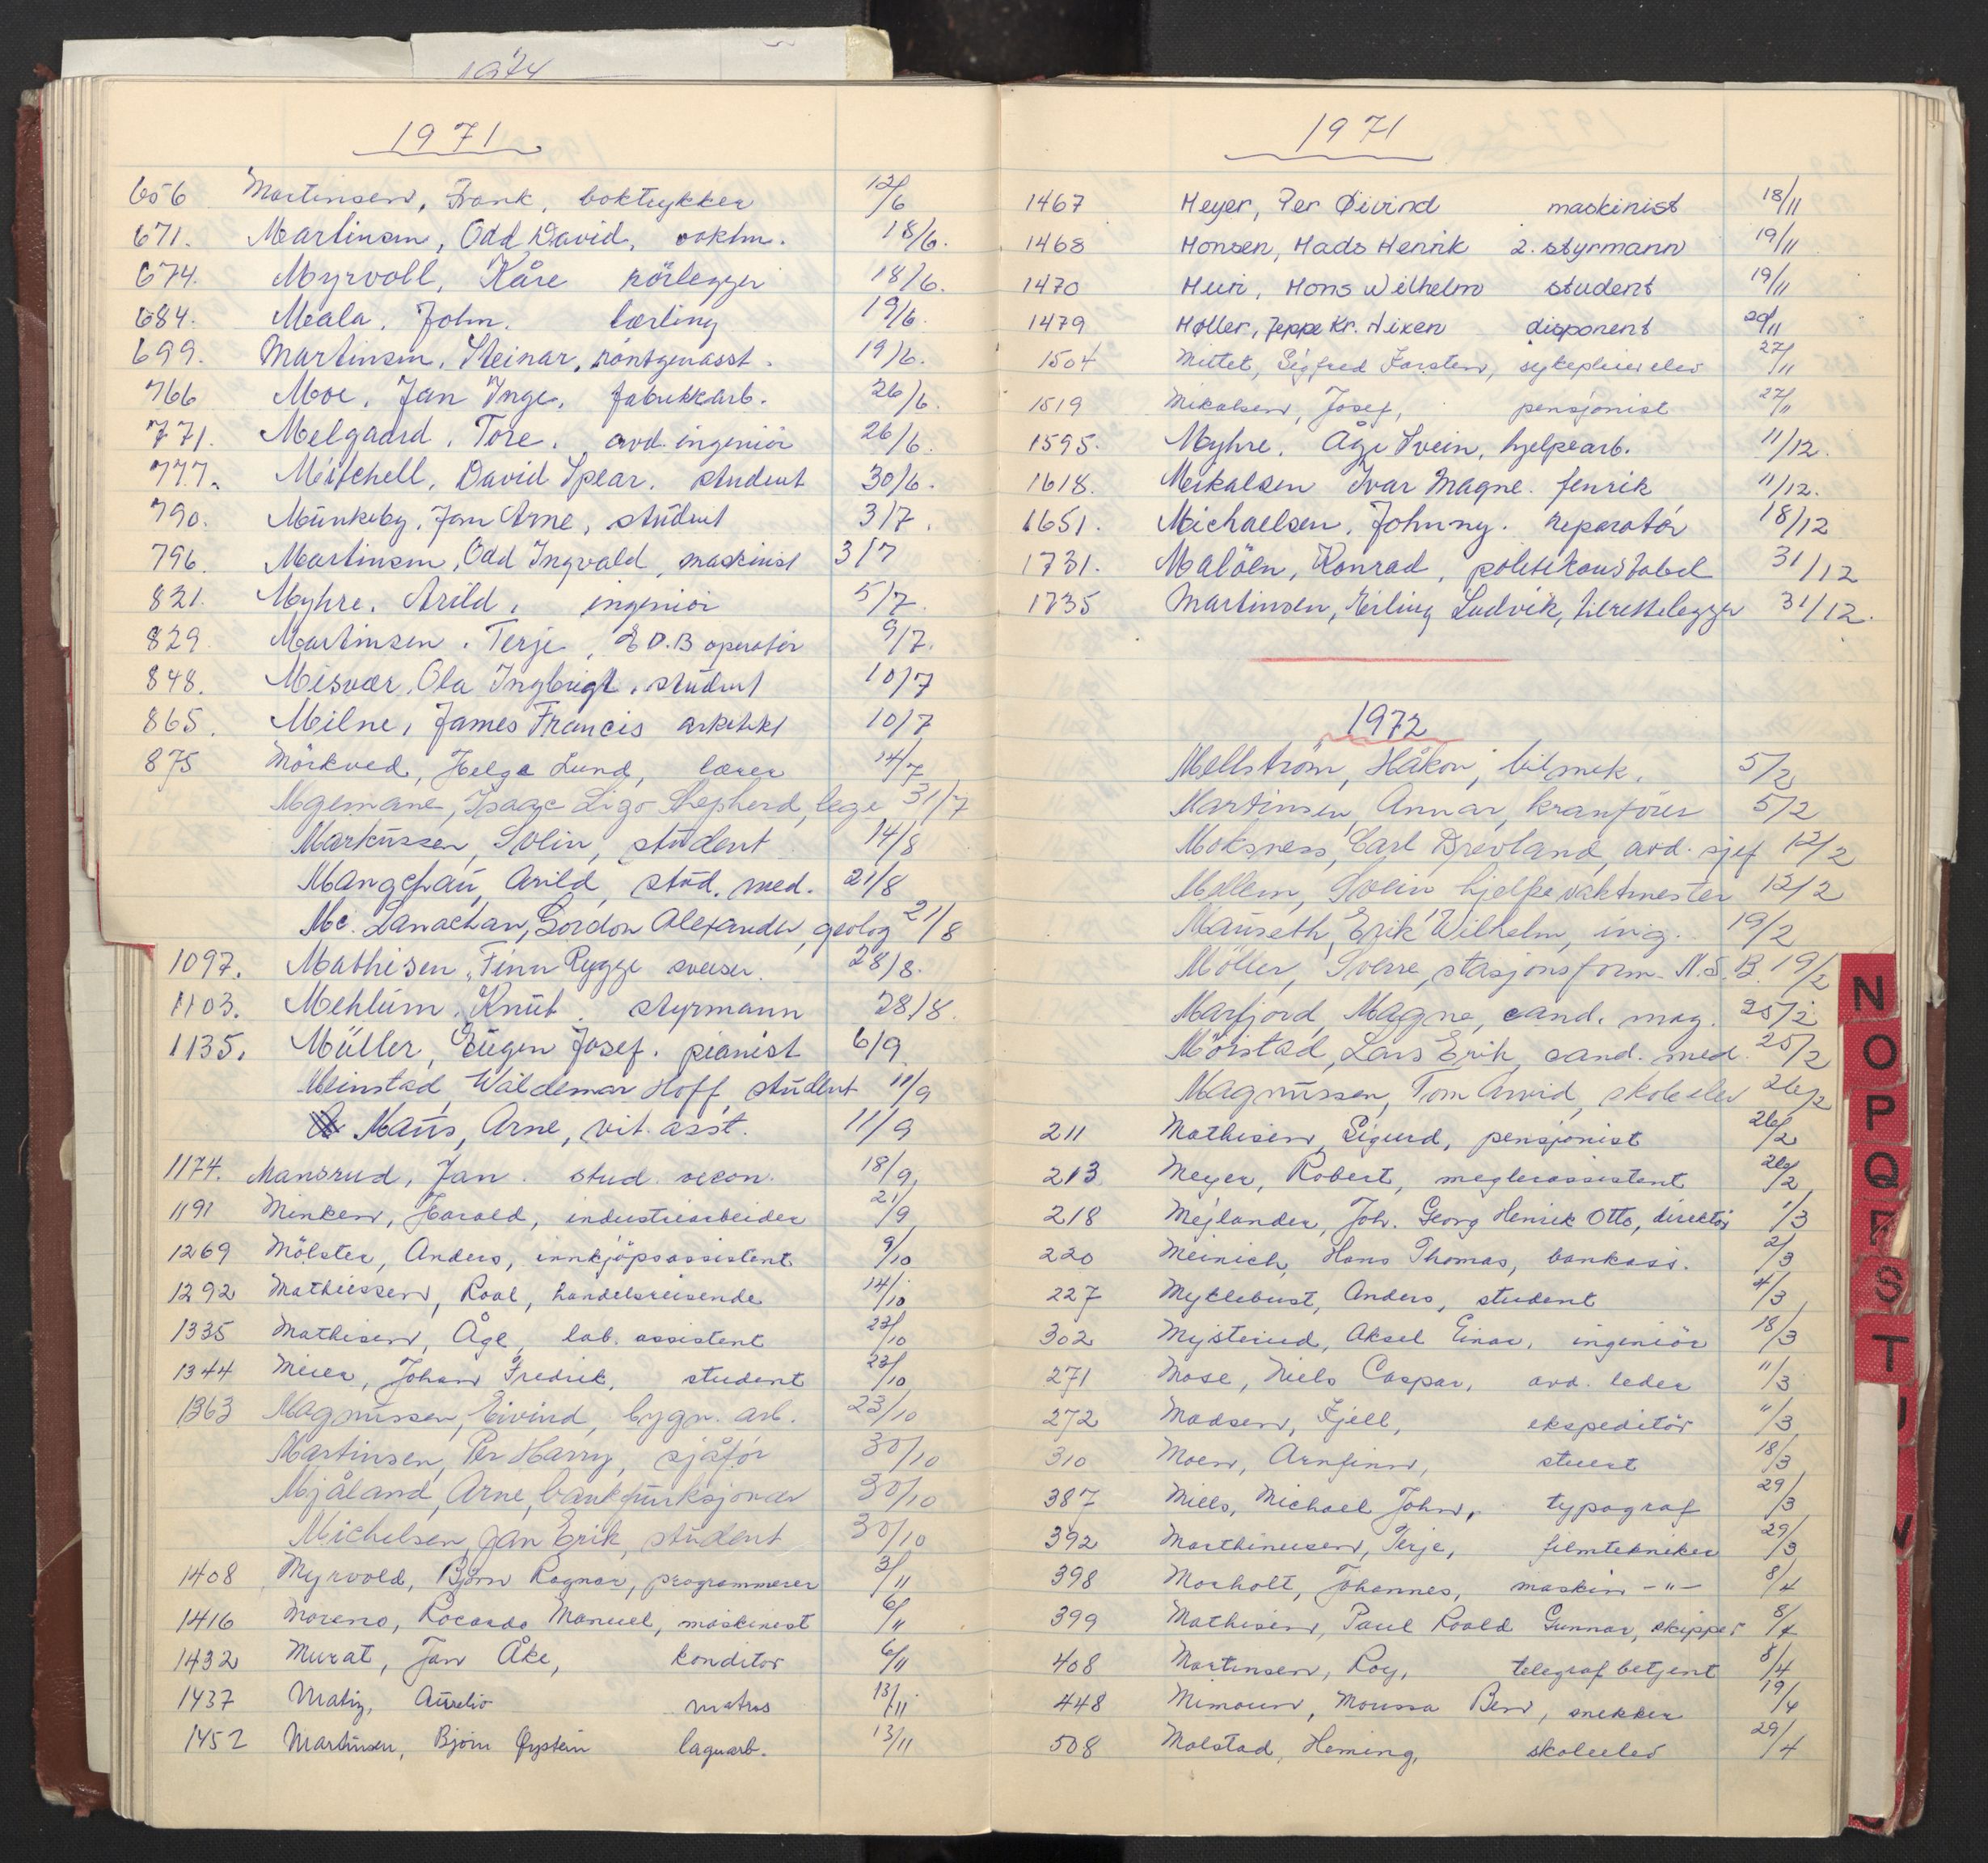 1974
1971
656 Martinsen, Frank, boktrykker 12/6
671. Martinsen, Odd David, 18/6.
674. Myrvoll, Kåre rörlegger 18/6.
684. Meala, John. lærling 19/6.
699. Martinsen, Steinar, röntgenasst. 19/6.
766 Moe, Jan Inge, fabrikkarb. 26/6.
771. Melgaard, Tore, avd. ingeniör 26/6.
777. Mitchell, David Spear, student 30/6.
790. Munkeby, Jan Arne, student 3/7.
796. Martinsen, Odd Ingvald, maskinist 3/7
821. Myhre, Arild, ingeniör 5/7.
829 Martinsen, Terje, E.D.B operatör 9/7.
848. Misvær, Ola Ingbrigt, student 10/7
865. Milne, James Francis arkitekt 10/7
875 Mörkved, Helge Lund, lærer 14/7
Mgemane, Isaac Ligo Shepherd, lege 31/7
Markussen, Svein, student 14/8
Mangchau, Arild, stud. med. 21/8
Mc. Lanachan, Gordon Alexander, geolog 21/8
1097. Mathisen, Finn Rygge sveiser. 28/8.
1103. Mehlum, Knut. styrmann 28/8.
1135. Müller, Eugen Josef. pianist 6/9
Meinstad, Waldemar Hoff, student 11/9
Maus, Arne, vit. asst. 11/9
1174. Mansrud, Jan. stud. oecon. 18/9.
1191 Minken, Harald, industriarbeider 21/9
1269 Mölster, Anders, innkjöpsassistent 9/10
1292 Mathiessen, Roal, handelsreisende 14/10
1335 Mathisen, Åge, lab. assistent 23/10
1344 Meier, Johan Fredrik, student 23/10
1363 Magnussen, Eivind, bygn. arb. 23/10
Martinsen, Per Harry, sjåför 30/10
Mjåland, Arne, bankfunksjonær 30/10
Michelsen, Jan Erik, student 30/10
1408 Myrvold, Bjørn Ragnar, programmerer 3/11
1416 Moreno, Rocardo Manuel, maskinist 6/11
1432 Murat, Jan Åke, konditor 6/11
1437 Matiz, Aurelio matros 13/11
1452 Martinsen, Bjørn Øystein lagerarb. 13/11
1971
1467 Meyer, Per Øivind maskinist 18/11
1468 Monsen, Mads Henrik 2. styrmann 19/11
1470 Muri, Hans Wilhelm student 19/11
1479 Møller, Jeppe Kr. Nixen disponent 20/11
1504 Mittet, Sigfred Karsten, sykepleierelev 27/11
1519 Mikalsen, Josef, pensjonist 27/11
1595. Myhre, Åge Svein, hjelpearb. 11/12.
1618. Mikalsen Ivar Magne. fenrik 11/12.
1651. Michaelsen, Johnny. reparatör 18/12
1731. Malöen, Konrad, politikonstabel 31/12
1735 Martinsen, Erling Ludvik, tilrettelegger 31/12.
1972
Mellström, Håkon, bilmek. 5/2
Martinsen, Annar, kranförer 5/2
Moksness, Carl Drevland, avd. sjef 12/2
Mollem, Svein hjelpevaktmester 12/2
Mauseth, Erik Wilhelm, ing. 19/2
Möller, Sverre, stasjonsform. N.S.B. 19/2
Marfjord, Magne, cand. mag. 25/2
Möistad, Lars Erik, cand. med. 25/2
Magnussen, Tom Arvid, skoleelev 26/2
211 Mathisen, Sigurd, pensjonist 26/2
213 Meyer, Robert, meglerassistent 26/2
218 Mejlander, Joh. Georg Henrik Otto, direktör 1/3
220 Meinich, Hans Thomas, bankass. 2/3
227 Myklebust, Anders, student 4/3
302 Mysterud, Aksel Einar, ingeniör 18/3
271 Mose, Niels Caspar, avd. leder 11/3
272 Madsen, Kjell, ekspeditör 11/3
310 Moen, Arnfinn, stuert 18/3
387 Mills, Michael John, typograf 29/3
392 Marthinusen, Terje, filmtekniker 29/3
398 Morholt, Johannes, maskin -"- 8/4
399 Mathisen, Paul Roald Gunnar, skipper 8/4
408 Martinsen, Roy, telegrafbetjent 8/4
448 Mimoun, Moussa Ben, snekker 19/4
508 Malstad, Heming, skoleelev 29/4
N
O
P
Q
R
S
T